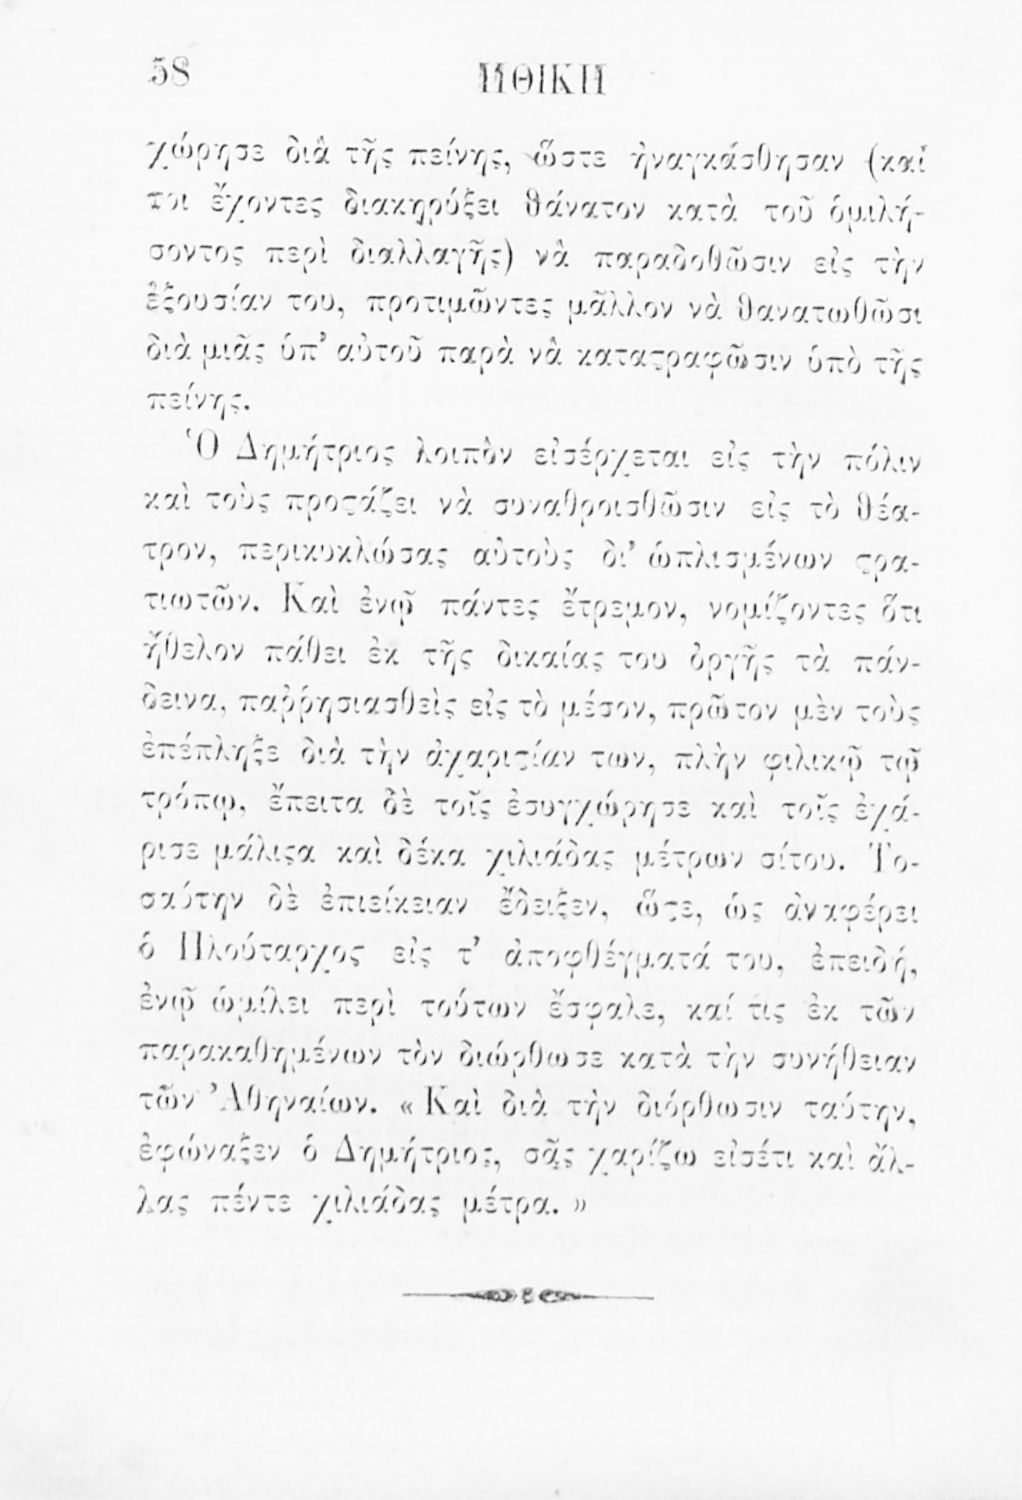 58 ΗΘΙΚΗ
χώρησε διὰ τῆς πείνης, ὥστε ἠναγκάσθησαν (καί
τοι ἔχοντες διακηρύξει θάνατον κατὰ τοῦ ὁμιλή-
σοντος περὶ διαλλαγῆς) νὰ παραδοθῶσιν εἰς τὴν
ἐξουσίαν του, προτιμῶντες μᾶλλον νὰ θανατωθῶσι
διὰ μιᾶς ὑπ' αὐτοῦ παρὰ νὰ καταϛραφῶσιν ὑπὸ τῆς
πείνης.
Ὁ Δημήτριος λοιπὸν εἰσέρχεται εἰς τὴν πόλιν
καὶ τοὺς προϛάζει νὰ συναθροισθῶσιν εἰς τὸ θέα-
τρον, περικυκλώσας αὐτοὺς δι' ὡπλισμένων ϛρα-
τιωτῶν. Καὶ ἐνῷ πάντες ἔτρεμον, νομίζοντες ὅτι
ἤθελον πάθει ἐκ τῆς δικαίας του ὀργῆς τὰ πάν-
δεινα, παῤῥησιασθεὶς εἰς τὸ μέσον, πρῶτον μὲν τοὺς
ἐπέπληξε διὰ τὴν ἀχαριϛίαν των, πλὴν φιλικῷ τῷ
τρόπῳ, ἔπειτα δὲ τοῖς ἐσυγχώρησε καὶ τοῖς ἐχά-
ρισε μάλιϛα καὶ δέκα χιλιάδας μέτρων σίτου. Το-
σαύτην δὲ ἐπιείκειαν ἔδειξεν, ὥϛε, ὡς ἀναφέρει
ὁ Πλούταρχος εἰς τ' ἀποφθέγματά του, ἐπειδή,
ἐνῷ ὡμίλει περὶ τούτων ἔσφαλε, καί τις ἐκ τῶν
παρακαθημένων τὸν διώρθωσε κατὰ τὴν συνήθειαν
τῶν Ἀθηναίων. « Καὶ διὰ τὴν διόρθωσιν ταύτην,
ἐφώναξεν ὁ Δημήτριος, σᾶς χαρίζω εἰσέτι καὶ ἄλ-
λας πέντε χιλιάδας μέτρα. »